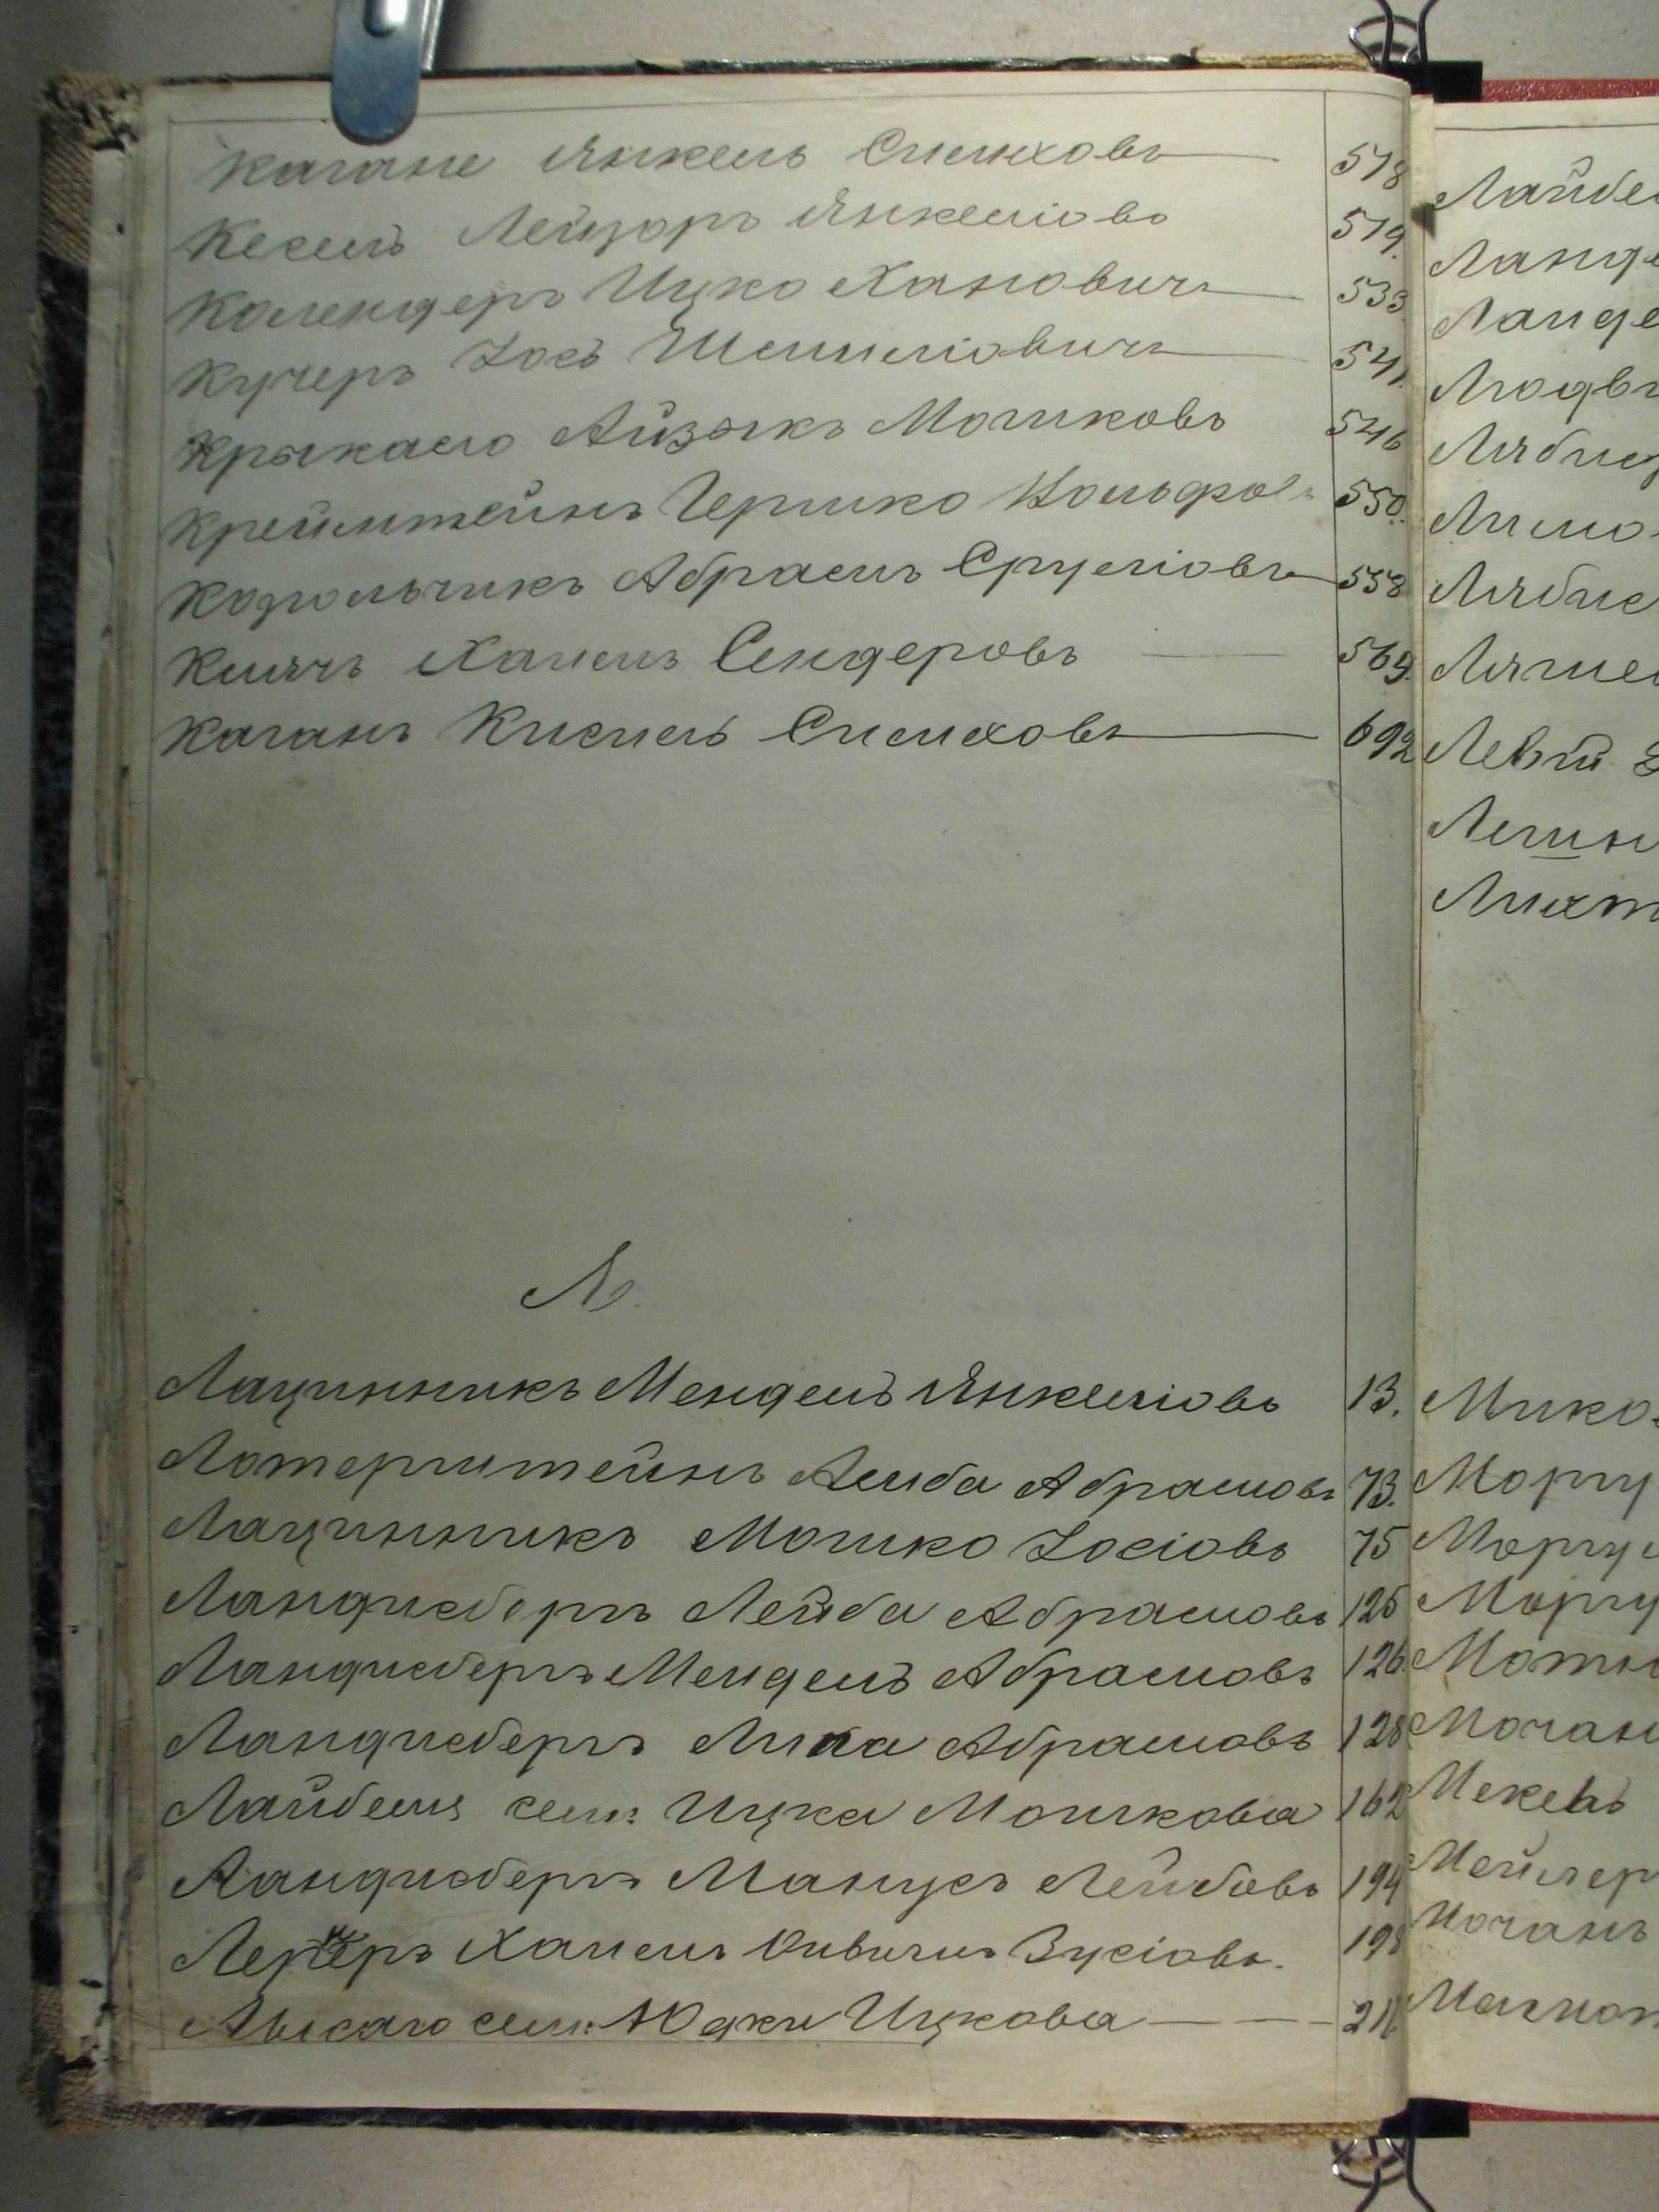 Каганъ Янкель Симховъ 518
Кесель Лейзоръ Янкеліовъ 519.
Календеръ Ицко Хановичъ 533.
Кучеръ Іось Шмиліовичъ 541.
Айзыкъ Мошковъ 546
Крейнтейнъ Гершко 550.
Козольчикъ Абрамъ Сруліовъ 558
Клячъ Хаимъ Сендеровъ 564.
Каганъ Кисиль Симховъ 692
Л.
Лацинникъ Мендель Янкеліовъ 13.
Лотерштейнъ Лейба Абрамовъ 73.
Лацинникъ Мошко Іосіовъ 75
Ландисбергъ Лейба Абрамовъ 125
Ландисбергъ Мендель Абрамовъ 126.
Ландисбергъ Липа Абрамовъ 128
Лайбеля сем: Ицка Мошкова 162
Ландисбергъ Манусъ Лейбовъ 194
Лернеръ Хаимъ Зусіовъ. 198
Лысаго сем: Юдки Ицкова 211.
Лайбе
Ланд
Ланде
Людви
Лябис
Лимо
Лябис
Левит
Лихт
Мико
Моргу
Моргу
Моргу
Мотн
Мочан
Мекель
Мейлер
Мочанъ